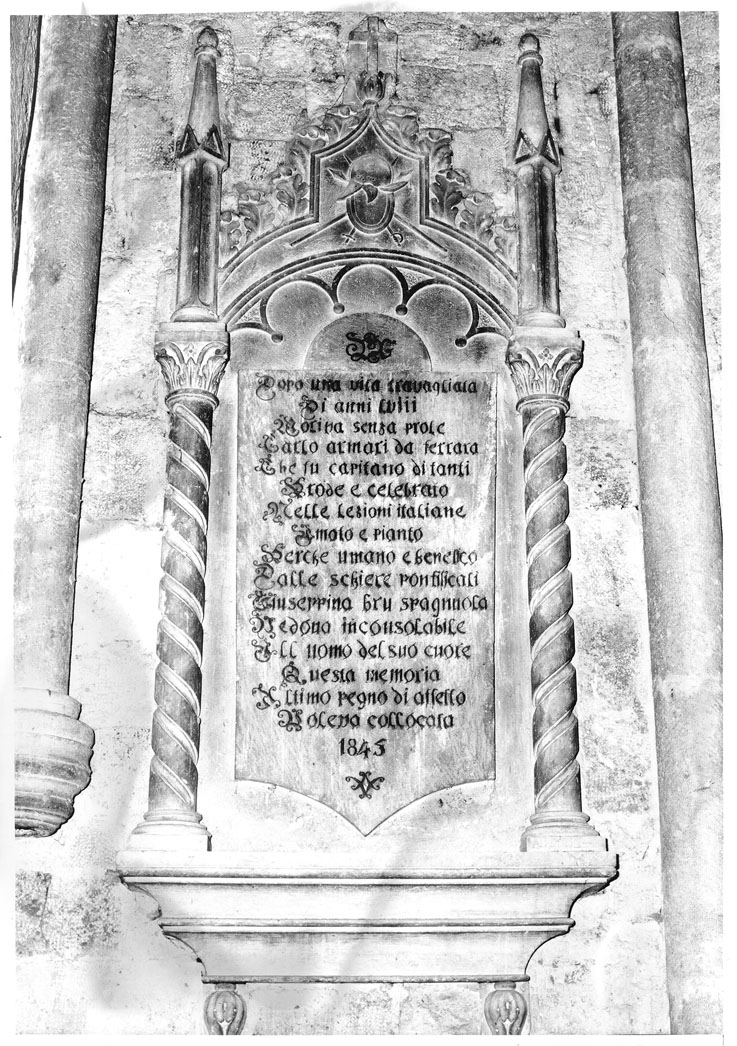 Dopo una vita travagliata
Di anni LVIII
Moriva senza prole
Carlo Armari da Ferrara
Che fu capitano di tanti
Prode e celebrato
Nelle Lezioni italiane
Amato e pianto
Perche umano e benefico
Dalle schiere pontificali
Giuseppina Bru spagnuola
Vedova inconsolabile
All uomo del suo cuore
Questa memoria
Ultimo pegno di affetto
Voleva collocata
1845